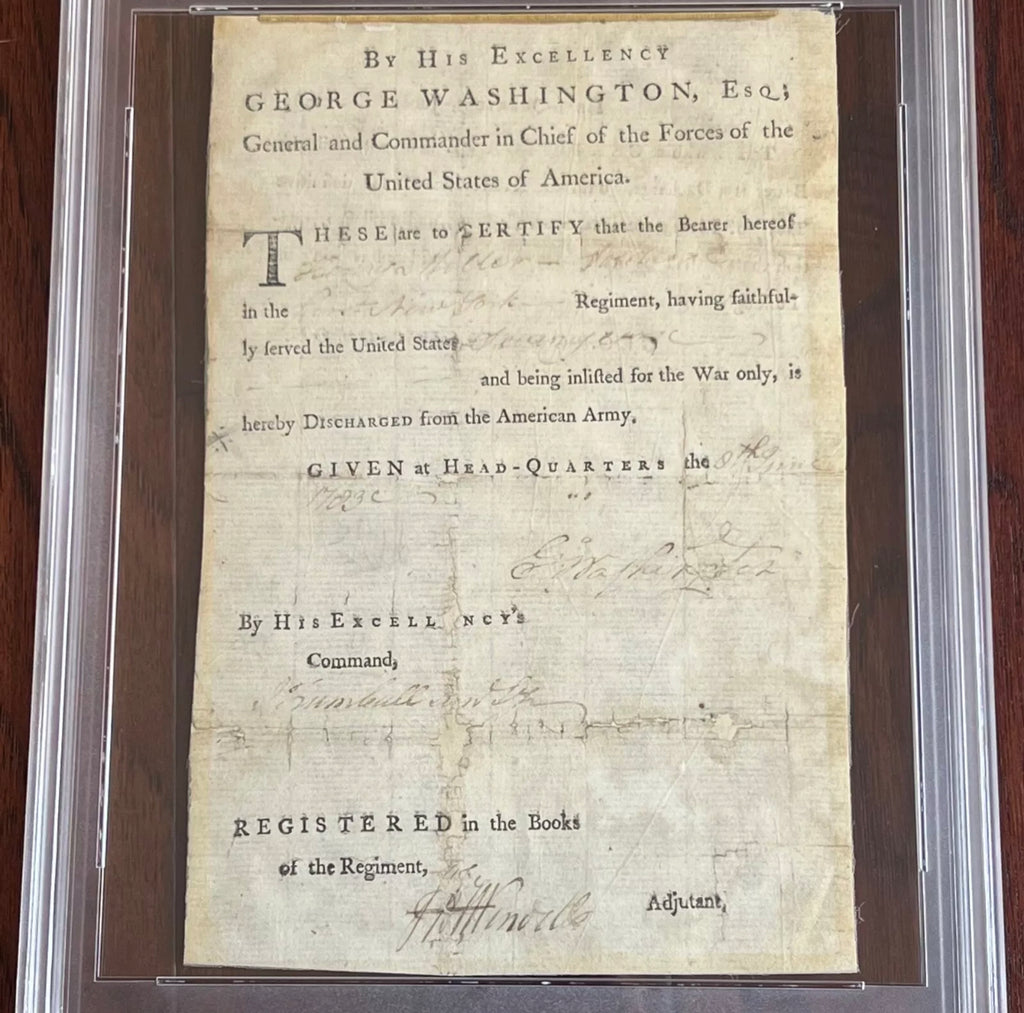 BY HIS EXCELLENCY
GEORGE WASHINGTON, ESQ;
General and Commander in Chief of the Forces of the
United States of America.
THESE are to CERTIFY that the Bearer hereof
in the New York Regiment, having faithful-
ly ſerved the United States
and being inliſted for the War only, is
hereby DISCHARGED from the American Army.
GIVEN at HEAD-QUARTERS the 8th June
1783
G Washington
By HIS EXCELL NCY'S
Command,
J Trumbull Jun
REGISTERED in the Books
of the Regiment,
Wendell Adjutant,